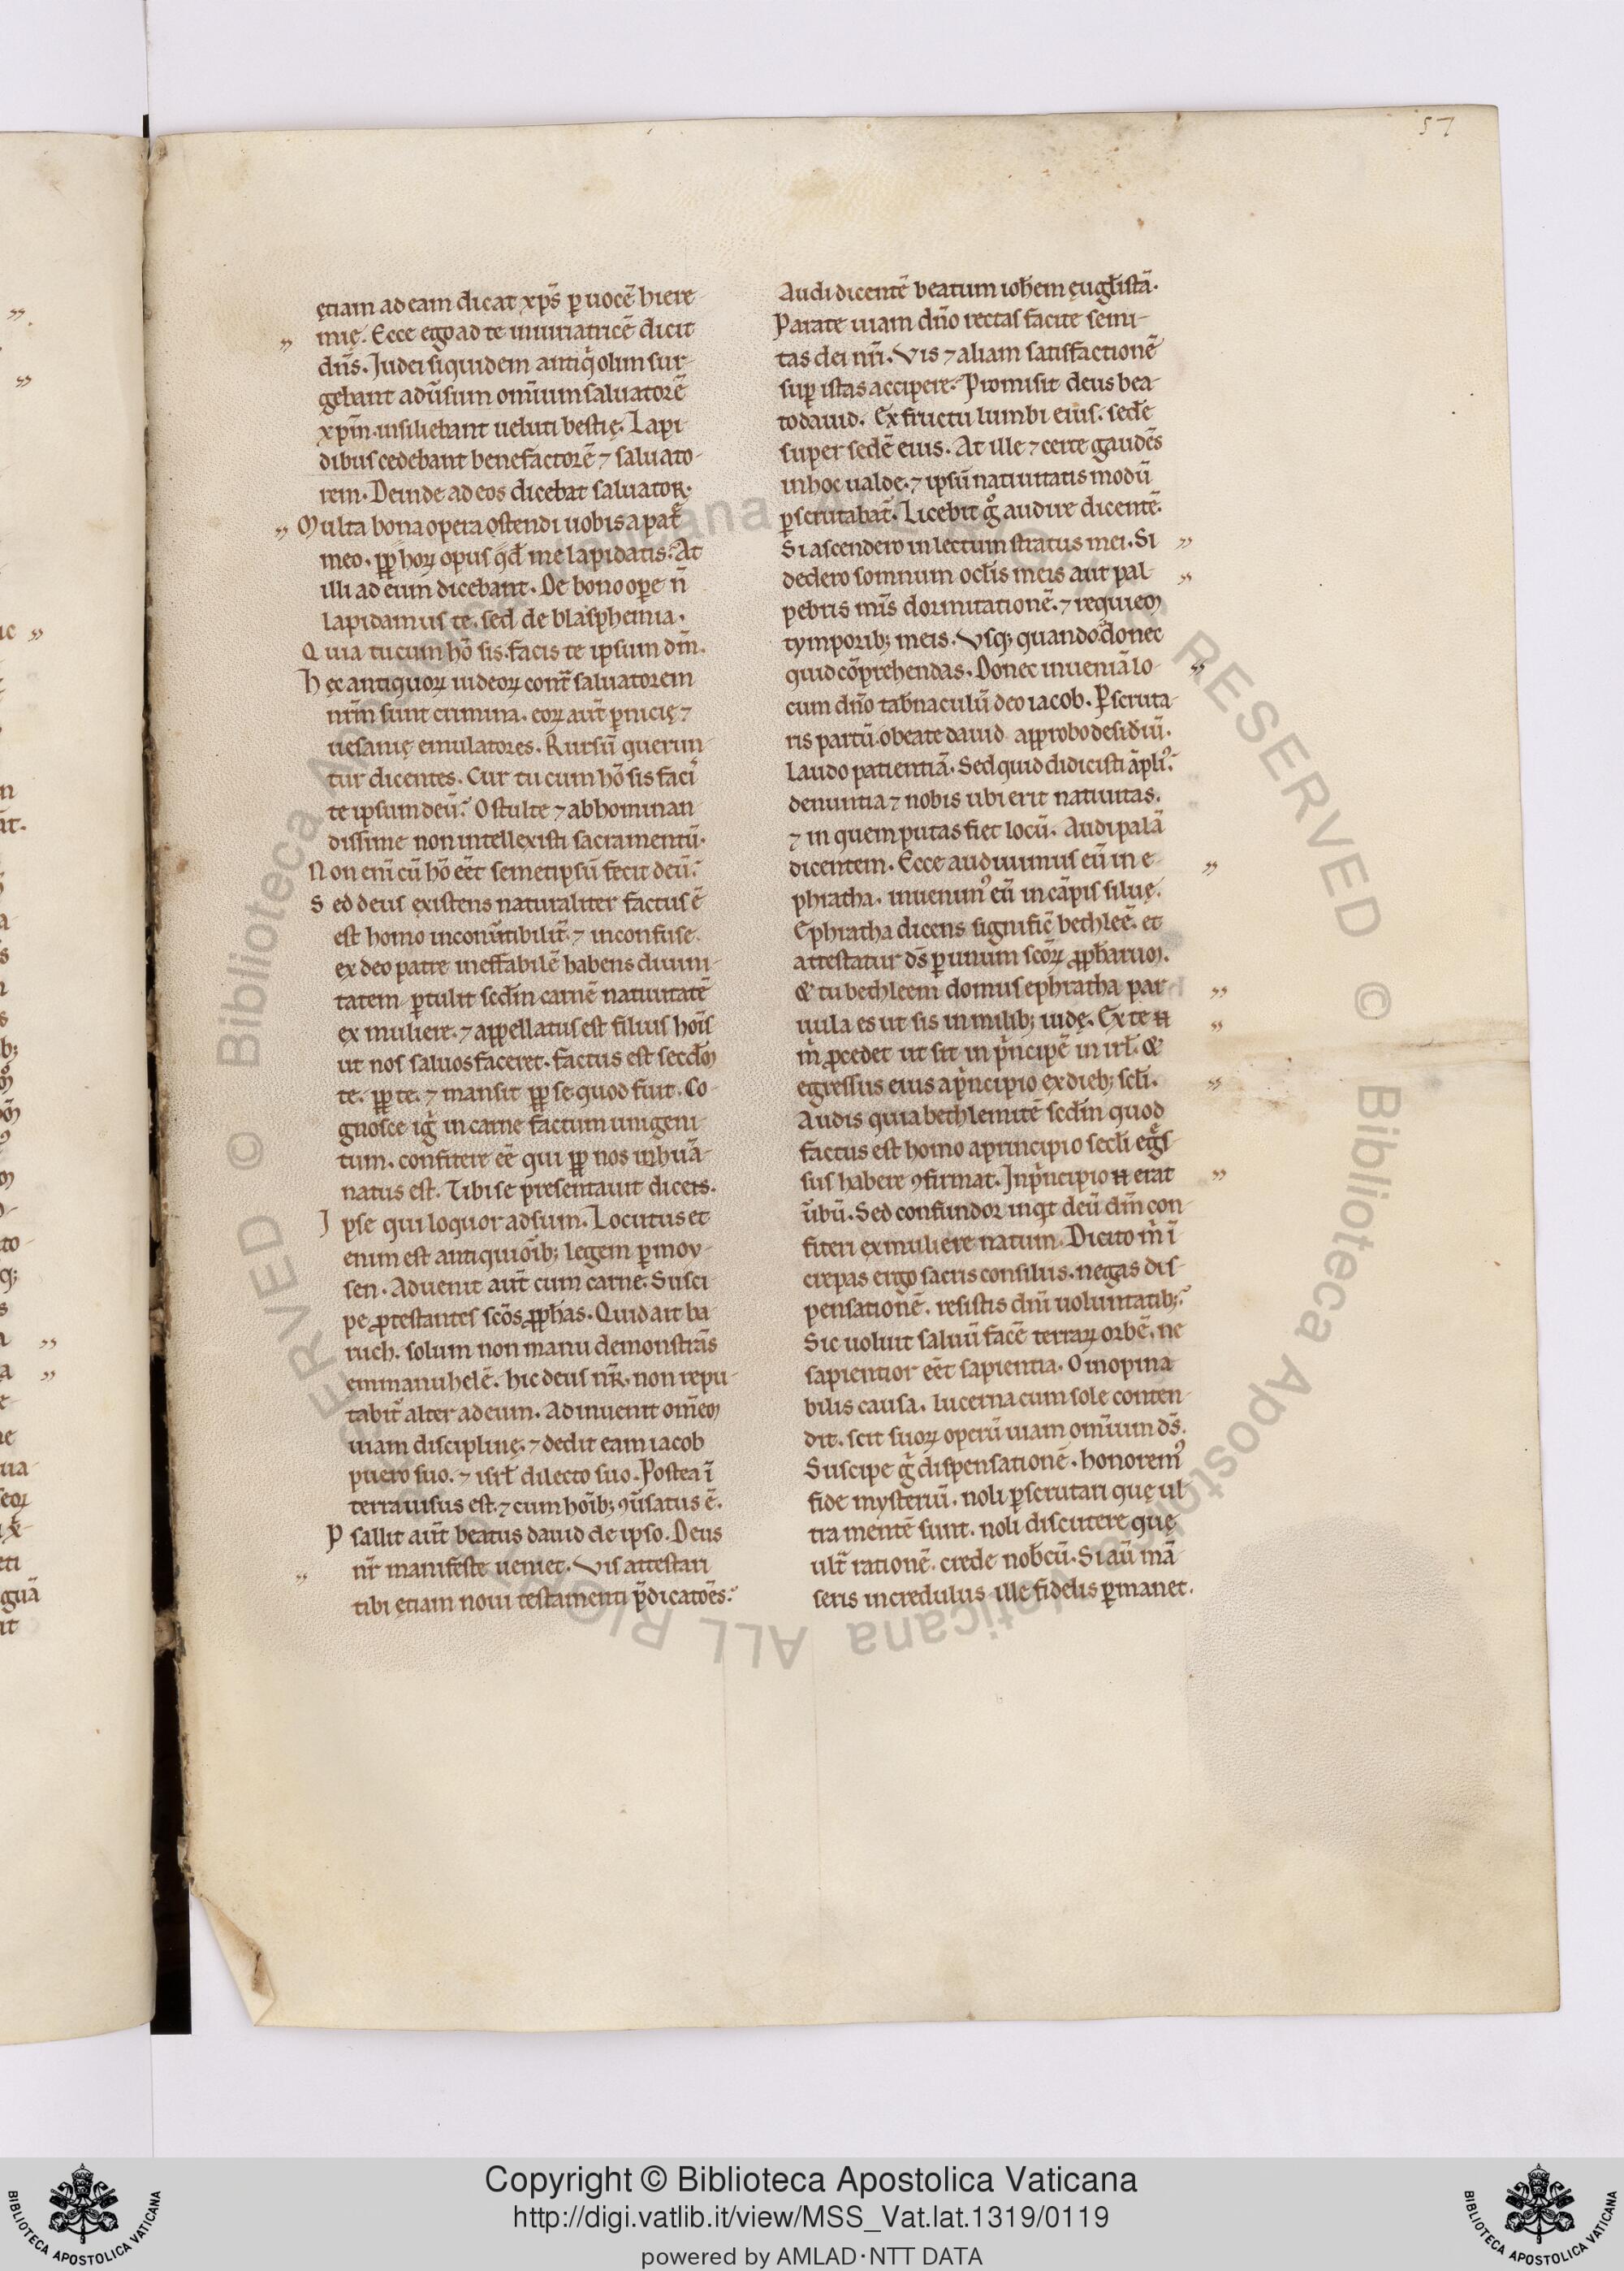 57
ętiam ad eam dicat xp̄s p̱ uocē hiere-
mię. Ecce ego ad te iniuriatricē dicit
dn̄s. Judei siquidem antiq̇ olim sur-
gebant adūsum omīum saluatorē
xp̄m. insiliebant ueluti bestię. Lapi-
dibus cedebant benefactorē ⁊ saluato-
rem. Deinde ad eos dicebat saluator.
Multa bona opera ostendi uobis a pat̄
meo. ꝓp hoꝝ opus qd̄ me lapidatis. At
illi ad eum dicebant. De bono oꝑe n̄
lapidamus te. sed de blasphemia.
Quia tu cum hō sis. facis te ipsum dm̄.
Hęc antiquoꝝ iudeoꝝ cont̄ saluatorem
nrm̄ sunt crimina. eoꝝ aut̄ ꝑnicię ⁊
uesanię emulatores. Rursū querun-
tur dicentes. Cur tu cum hō sis faci᷒
te ipsum deū. O stulte ⁊ abhominan
dissime non intellexisti sacramentū.
Non eni cū hō eēt semetipsū fecit deū.
Sed deus existens naturaliter factus ē
est homo inconūtibilit̄. ⁊ inconfuse.
ex deo patre ineffabilē habens diuini-
tatem ꝑtulit scdm̄ carnē natiuitatē
ex muliere. ⁊ appellatus est filius hoīs
ut nos saluos faceret. factus est secdm̄
te. ꝓp te. ⁊ mansit ꝓp se quod fuit. Co-
gnosce iġ in carne factum unigeni-
tum. confitere eē qui ꝓp nos inhuā-
natus est. Tibi se presentauit dicens.
Ipse qui loquor adsum. Locutus et
enim est antiquiorib; legem ꝑ moy-
sen. Aduenit aut̄ cum carne. Susci-
pe ꝓtestantes scōs ꝓphas. Quid ait ba-
ruch. solum non manu demonstrās
emmanuhelē. hic deus nr̄. non repu-
tabit̄ alter ad eum. Adinuenit omēm
uiam disciplinę. ⁊ dedit eam iacob
puero suo. ⁊ isrl̄ dilecto suo. Postea ī
terra uisus est. ⁊ cum hoīb; ꝯūsatus ē.
Psallit aut̄ beatus dauid de ipso. Deus
nr̄ manifeste ueniet. Vis attestari
tibi ętiam noui testamenti p̄dicatoēs.
Audi dicentē beatum ioh̄em euglīstā.
Parate uiam dn̄o rectas facite semi-
tas dei nr̄i. Vis ⁊ aliam satisfactionē
suꝑ istas accipere. Promisit deus bea-
to dauid. Ex fructu lumbi eius. sedē
super sedē eius. At ille ⁊ certe gaudēs
in hoc ualde. ⁊ ipsū natiuitatis modū
ꝑscrutabat̄. Licebit g̊ audire dicentē.
Si ascendero in lectum stratus mei. Si
dedero somnum oclīs meis aut pal-
pebris mīs dormitationē. ⁊ requiem
tymporib; meis. Vsq; quando donec
quid cōprehendas. Donec inueniā lo-
cum dn̄o tabnaculū deo iacob. Ꝑscruta-
ris partū. o beate dauid approbo desidiū.
Laudo patientiā. Sed quid didicisti āpli᷒.
denuntia ⁊ nobis ubi erit natiuitas.
⁊ in quem putas fiet locū. Audi palā
dicentem. Ecce audiuimus eū in e-
phratha. inuenim᷒ eū in cāpis siluę.
Ephratha dicens signific̄ bethleē. et
attestatur ds̄ ꝑ unum scōꝝ ꝓpharum.
& tu bethleem domus ephratha par-
uula es ut sis in milib; iudę. Ex te n̄
m̄ ꝓcedet ut sit in pncipē in irl̄. &
egressus eius a pncipio ex dieb; scl̄i.
Audis quia bethlemitē scdm̄ quod
factus est homo a principio secl̄i egs̄-
sus habere ꝯfirmat. In pncipio n̄ erat
ūbū. Sed confundor inqt deū dm̄ con-
fiteri ex muliere natum. Dicito m̄ ī
crepas ergo sacris consiliis. negas dis-
pensationē. resistis dn̄i uoluntatib;.
Sic uoluit saluū facē terraꝝ orbē. ne
sapientior eēt sapientia. O inopina-
bilis causa. lucerna cum sole conten-
dit. scit suoꝝ operū uiam omīum ds̄.
Suscipe g̊ dispensationē. honorem᷒
fide mysteriū. noli ꝑscrutari quę ul
tra mentē sunt. noli discutere quę
ult̄ rationē. crede nobcū. Si aū mā-
seris incredulus ille fidelis ꝑmanet.
Copyright © Biblioteca Apostolica Vaticana
http://digi.vatlib.it/view/MSS_Vat.lat.1319/0119
powered by AMLAD·NTT DATA